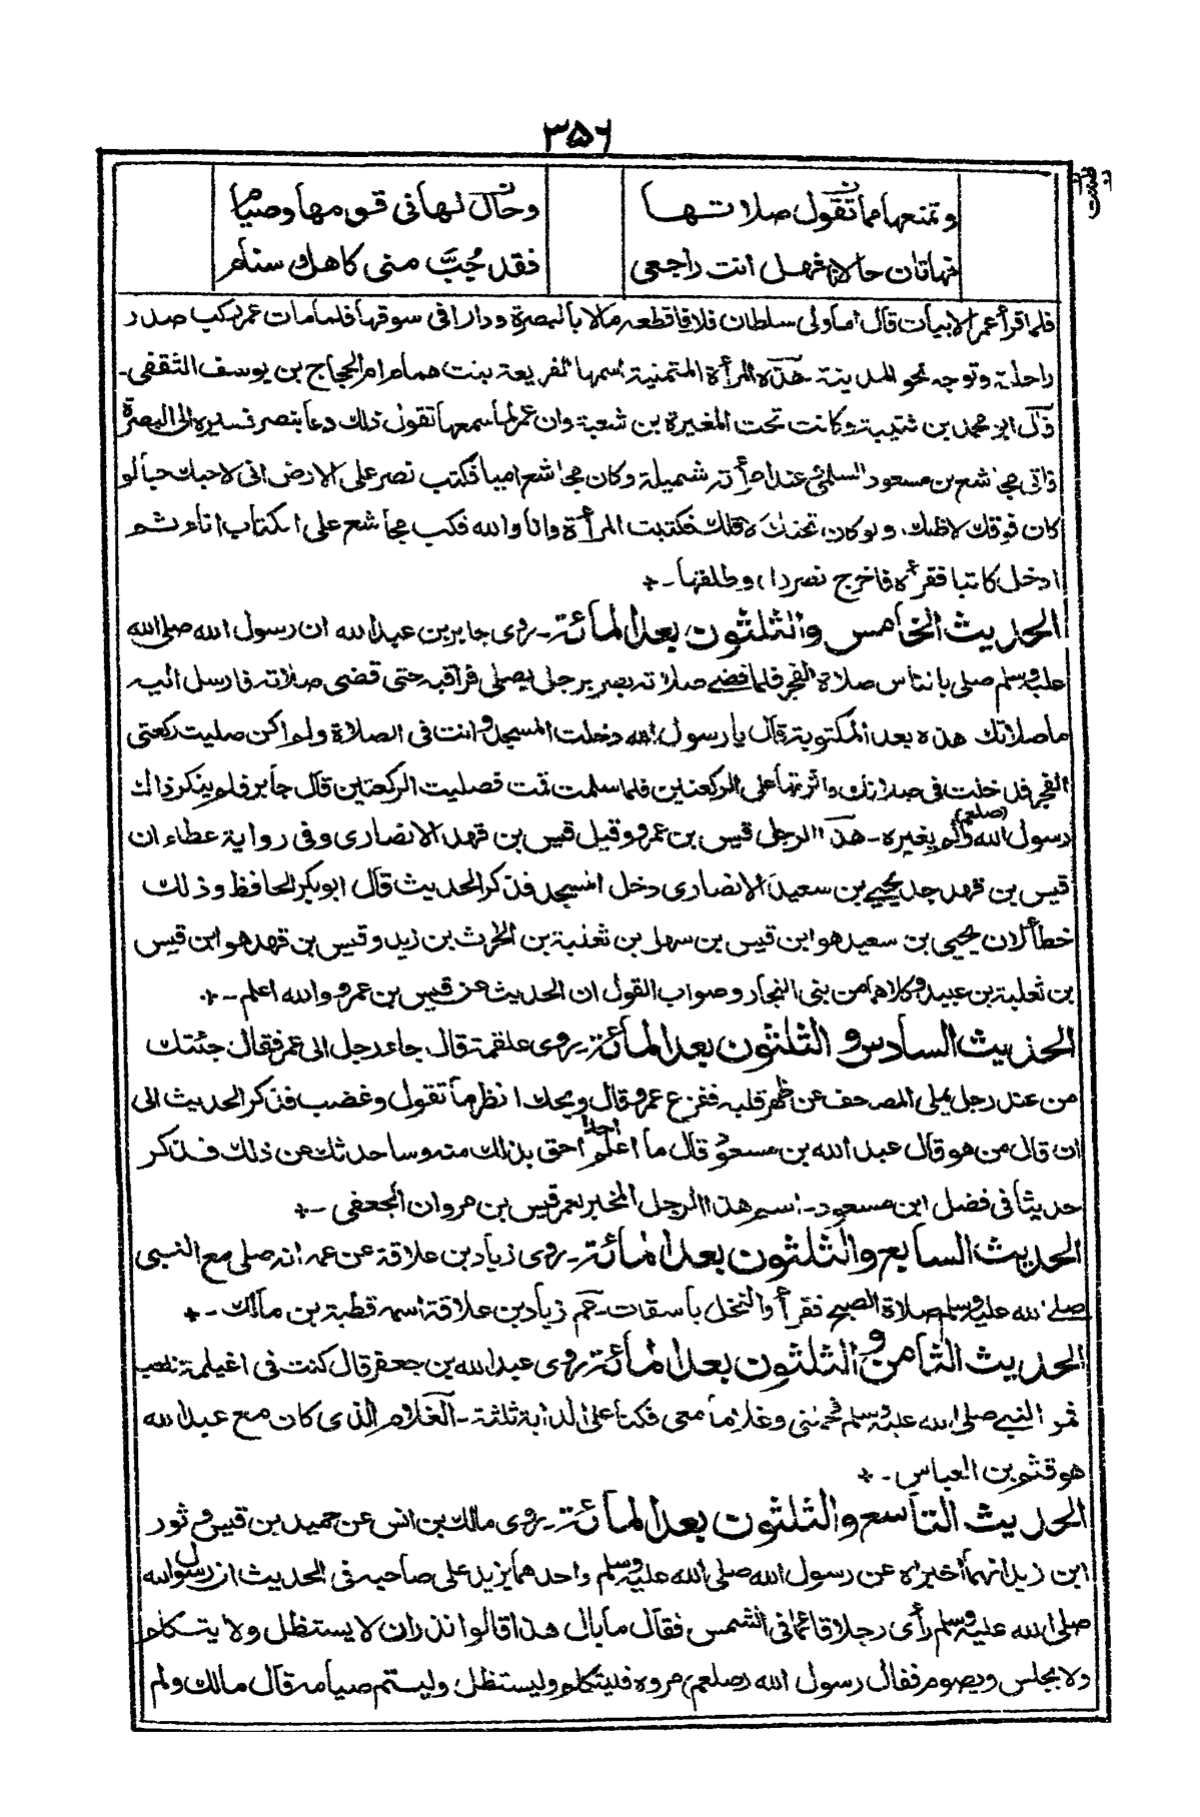 ٣٥٦
وتمنعها مما تقول صلاتها وحال لها فى قومها وصيام
فهاتان حالانا فهل انت راجعى فقد جُبَّ منى كاهل وسنام
فلما قرأ عمر الابيات قال اما ولى سلطان فلا فاقطعه مالا بالبصرة ودارا فى سوقها فلما مات عمر ركب صدر
راحلته وتوجه نحو المدينة - هذه المرأة المتمنية اسمها الفريعة بنت همام ام الحجاج بن يوسف الثقفى -
قال ابو محمد بن قتيبة وكانت تحت المغيرة بن شعبة وان عمر لما سمعها تقول ذلك دعا بنصر فسيره الى البصرة
فاتى مجاشع بن مسعود السلمى عند امرأته شميلة وكان مجاشع اميا فكتب نصر على الارض انى لاحبك حبا لو
كان فوقك لاظلك ولو كان تحتك لاقلك فكتبت المرأة وانا والله فكب مجاشع على الكتاب اناء ثم
ادخل كاتبا فقرءه فاخرج نصرا وطلقها -
الحديث الخامس والثلثون بعد المائة - روى جابر بن عبد الله ان رسول الله صلى الله
عليه وسلم صلى بالناس صلاة الفجر فلما قضى صلاته بصر برجل يصلى فراقبه حتى قضى صلاته فارسل اليه
ما صلاتك هذه بعد المكتوبة قال يا رسول الله دخلت المسجد وانت فى الصلاة ولم اكن صليت ركعتى
الفجر فدخلت فى صلاتك واثرتها على الركعتين فلما سلمت قمت فصليت الركعتين قال جابر فلم ينكر ذاك
رسول الله (صلعم) ولم يغيره - هذا الرجل قيس بن عمرو وقيل قيس بن قهد الانصارى وفى رواية عطاء ان
قيس بن قهد جد يحيى بن سعيد الانصارى دخل المسجد فذكر الحديث قال ابو بكر الحافظ وذلك
خطأ لان يحيى بن سعيد هو ابن قيس بن سهل بن ثعلبة بن الحرث بن زيد وقيس بن قهد هو ابن قيس
بن ثعلبة بن عبيد وكلاهما من بنى النجار وصواب القول ان الحديث عن قيس بن عمرو والله اعلم -
الحديث السادس و الثلثون بعد المائة - روى علقمة قال جاء رجل الى عمر فقال جئتك
من عند رجل يملى المصحف عن ظهر قلبه ففزع عمر وقال ويحك انظر ما تقول وغضب فذكر الحديث الى
ان قال من هو قال عبد الله بن مسعود قال ما اعلم احدا احق بذلك منه وساحدثك عن ذلك فذكر
حديثا فى فضل ابن مسعود - اسم هذا الرجل المخبر لعمر قيس بن مروان الجعفى -
الحديث السابع والثلثون بعد المائة - روى زياد بن علاقة عن عمه انه صلى مع النبى
صلى الله عليه وسلم صلاة الصبح فقرأ والنخل باسقات - عم زياد بن علاقة اسمه قطبة بن مالك -
الحديث الثامن و الثلثون بعد المائة - روى عبد الله بن جعفر قال كنت فى اغيلمة نلعب
فمر النبى صلى الله عليه وسلم فحملنى وغلاما معى فكنا على الدابة ثلثة - الغلام الذى كان مع عبد الله
هو قثم بن العباس -
الحديث التاسع والثلثون بعد المائة - روى مالك بن انس عن حميد بن قيس وثور
ابن زيد انهما اخبراه عن رسول الله صلى الله عليه وسلم واحدهما يزيد على صاحبه فى الحديث ان رسول الله
صلى الله عليه وسلم رأى رجلا قائما فى الشمس فقال ما بال هذا قالوا نذر ان لا يستظل ولا يتكلم
ولا يجلس ويصوم فقال رسول الله (صلعم) مروه فليتكلم وليستظل وليستم صيامه قال مالك ولم